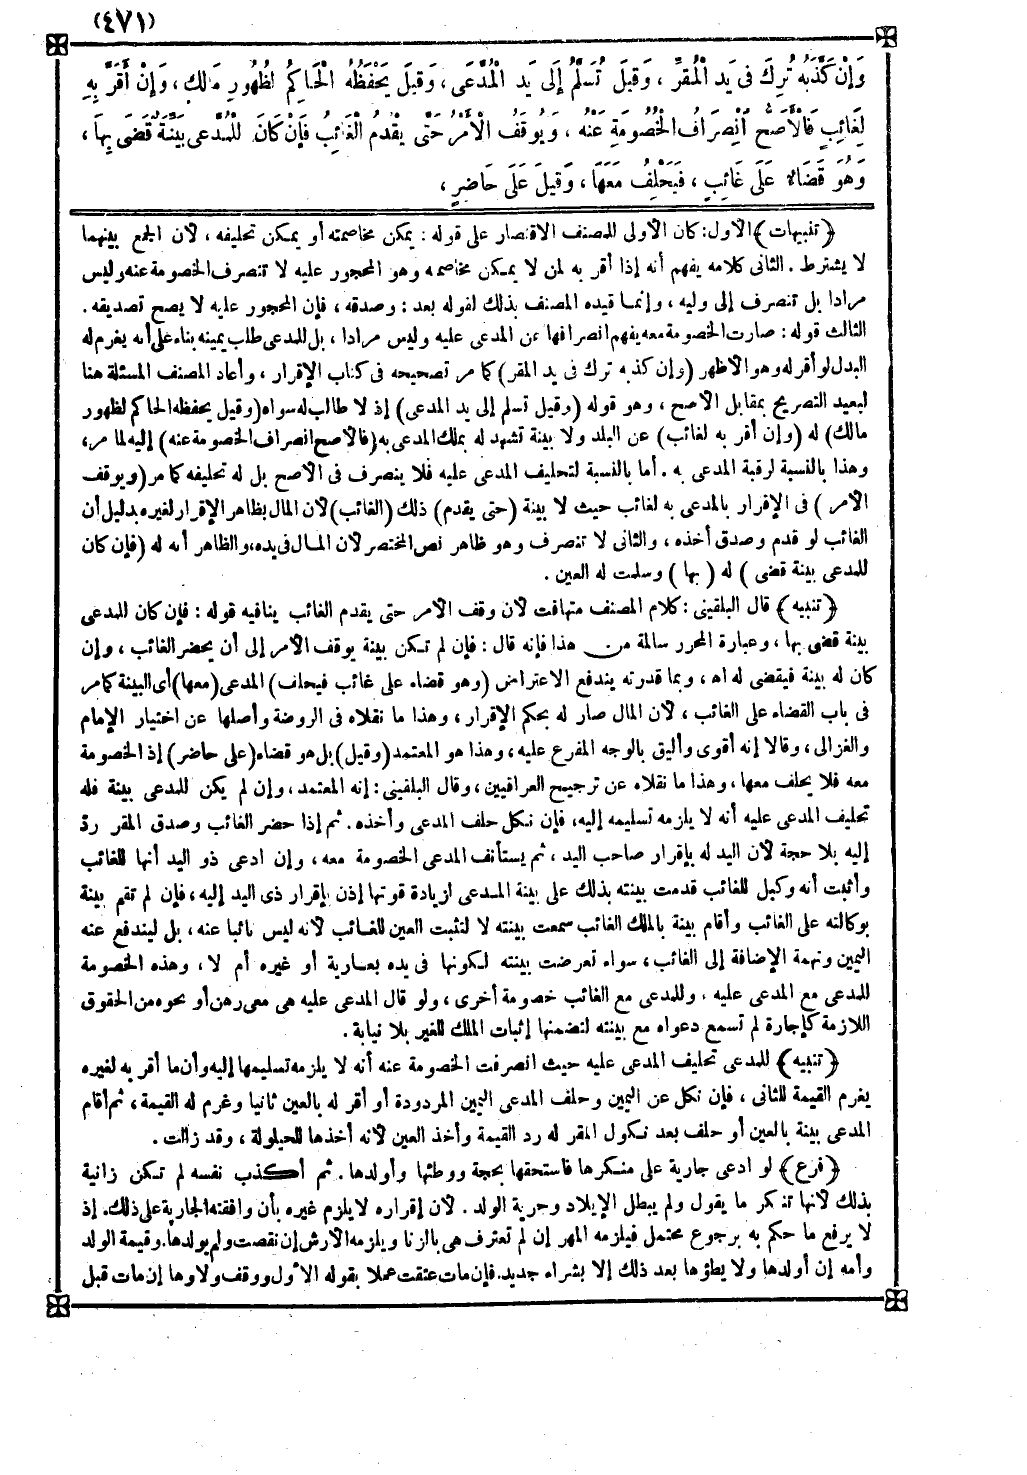 (٤٧١)
وَإِنْ كَذَّبَهُ تُرِكَ فِى يَدِ الْمُقِرِّ ، وَقِيلَ تُسَلَّمُ إِلَى يَدِ الْمُدَّعِى ، وَقِيلَ يَحْفَظُهُ الْحَاكِمُ لِظُهُورِ مَالِكٍ ، وَإِنْ أَقَرَّ بِهِ
لِغَائِبٍ فَالْأَصَحُّ انْصِرَافُ الْخُصُومَةِ عَنْهُ ، وَيُوقَفُ الْأَمْرُ حَتَّى يَقْدَمَ الْغَائِبُ فَإِنْ كَانَ لِلْمُدَّعِى بَيِّنَةٌ قَضَى بِهَا ،
وَهُوَ قَضَاءٌ عَلَى غَائِبٍ ، فَيَحْلِفُ مَعَهَا ، وَقِيلَ عَلَى حَاضِرٍ ،
﴿ تنبيهات ﴾ الأول : كان الأولى للمصنف الاقتصار على قوله : يمكن مخاصمته أو يمكن تحليفه ، لأن الجمع بينهما
لا يشترط . الثانى كلامه يفهم أنه إذا أقر به لمن لا يمكن مخاصمه وهو المحجور عليه لا تنصرف الخصومة عنه وليس
مرادا بل تنصرف إلى وليه ، وإنما قيده المصنف بذلك لقوله بعد : وصدقه ، فإن المحجور عليه لا يصح تصديقه .
الثالث قوله : صارت الخصومة معه يفهم انصرافها عن المدعى عليه وليس مرادا ، بل للمدعى طلب يمينه بناء على أنه يغرم له
البدل لو أقر له وهو الأظهر (وإن كذبه ترك فى يد المقر) كما مر تصحيحه فى كتاب الإقرار ، وأعاد المصنف المسئلة هنا
ليعيد التصريح بمقابل الأصح ، وهو قوله (وقيل تسلم إلى يد المدعى) إذ لا طالب له سواه (وقيل يحفظه الحاكم لظهور
مالك) له (وإن أقر به لغائب) عن البلد ولا بينة تشهد له بملك المدعى به (فالأصح انصراف الخصومة عنه) إليه لما مر،
وهذا بالنسبة لرقبة المدعى به . أما بالنسبة لتحليف المدعى عليه فلا ينصرف فى الأصح بل له تحليفه كما مر (ويوقف
الأمر) فى الإقرار بالمدعى به لغائب حيث لا بينة (حتى يقدم) ذلك (الغائب) لأن المال بظاهر الإقرار لغيره بدليل أن
الغائب لو قدم وصدق أخذه ، والثانى لا تنصرف وهو ظاهر نص المختصر لأن المال فى يده، والظاهر أنه له (فإن كان
للمدعى بينة قضى) له (بها) وسلمت له العين .
﴿ تنبيه ﴾ قال البلقينى : كلام المصنف متهافت لأن وقف الأمر حتى يقدم الغائب ينافيه قوله : فإن كان للمدعى
بينة قضى بها ، وعبارة المحرر سالمة من هذا فإنه قال : فإن لم تكن بينة يوقف الأمر إلى أن يحضر الغائب ، وإن
كان له بينة فيقضى له اه ، وبما قدرته يندفع الاعتراض (وهو قضاء على غائب فيحلف) المدعى (معها) أى البينة كما مر
فى باب القضاء على الغائب ، لأن المال صار له بحكم الإقرار ، وهذا ما نقلاه فى الروضة وأصلها عن اختيار الإمام
والغزالى ، وقالا إنه أقوى وأليق بالوجه المفرع عليه ، وهذا هو المعتمد (وقيل) بل هو قضاء (على حاضر) إذ الخصومة
معه فلا يحلف معها ، وهذا ما نقلاه عن ترجيح العراقيين ، وقال البلقينى : إنه المعتمد ، وإن لم يكن للمدعى بينة فله
تحليف المدعى عليه أنه لا يلزمه تسليمه إليه، فإن نكل حلف المدعى وأخذه . ثم إذا حضر الغائب وصدق المقر ردّ
إليه بلا حجة لأن اليد له بإقرار صاحب اليد ، ثم يستأنف المدعى الخصومة معه ، وإن ادعى ذو اليد أنها للغائب
وأثبت أنه وكيل للغائب قدمت بينته بذلك على بينة المدعى لزيادة قوتها إذن بإقرار ذى اليد إليه ، فإن لم تقم بينة
بوكالته على الغائب وأقام بينة بالملك الغائب سمعت بينته لا لتثبت العين للغائب لأنه ليس نائبا عنه ، بل ليندفع عنه
اليمين وتهمة الإضافة إلى الغائب ، سواء تعرضت بينته لكونها فى يده بعارية أو غيره أم لا ، وهذه الخصومة
للمدعى مع المدعى عليه . وللمدعى مع الغائب خصومة أخرى ، ولو قال المدعى عليه هى معى رهن أو نحوه من الحقوق
اللازمة كإجارة لم تسمع دعواه مع بينته لتضمنها إثبات الملك للغير بلا نيابة .
﴿ تنبيه ﴾ للمدعى تحليف المدعى عليه حيث انصرفت الخصومة عنه أنه لا يلزمه تسليمها إليه وأن ما أقر به لغيره
يغرم القيمة للثانى ، فإن نكل عن اليمين وحلف المدعى اليمين المردودة أو أقر له بالعين ثانيا وغرم له القيمة ، ثم أقام
المدعى بينة بالعين أو حلف بعد نكول المقر له رد القيمة وأخذ العين لأنه أخذها للحيلولة ، وقد زالت .
﴿ فرع ﴾ لو ادعى جارية على منكرها فاستحقها بحجة ووطئها وأولدها . ثم أكذب نفسه لم تكن زانية
بذلك لأنها تنكر ما يقول ولم يبطل الإيلاد وحرية الولد . لأن إقراره لا يلزم غيره بأن وافقته الجارية على ذلك. إذ
لا يرفع ما حكم به برجوع محتمل فيلزمه المهر إن لم تعترف هى بالزنا ويلزمه الأرش إن نقصت ولم يولدها. وقيمة الولد
وأمه إن أولدها ولا يطؤها بعد ذلك إلا بشراء جديد. فإن مات عتقت عملا بقوله الأول ووقف ولاؤها إن مات قبل